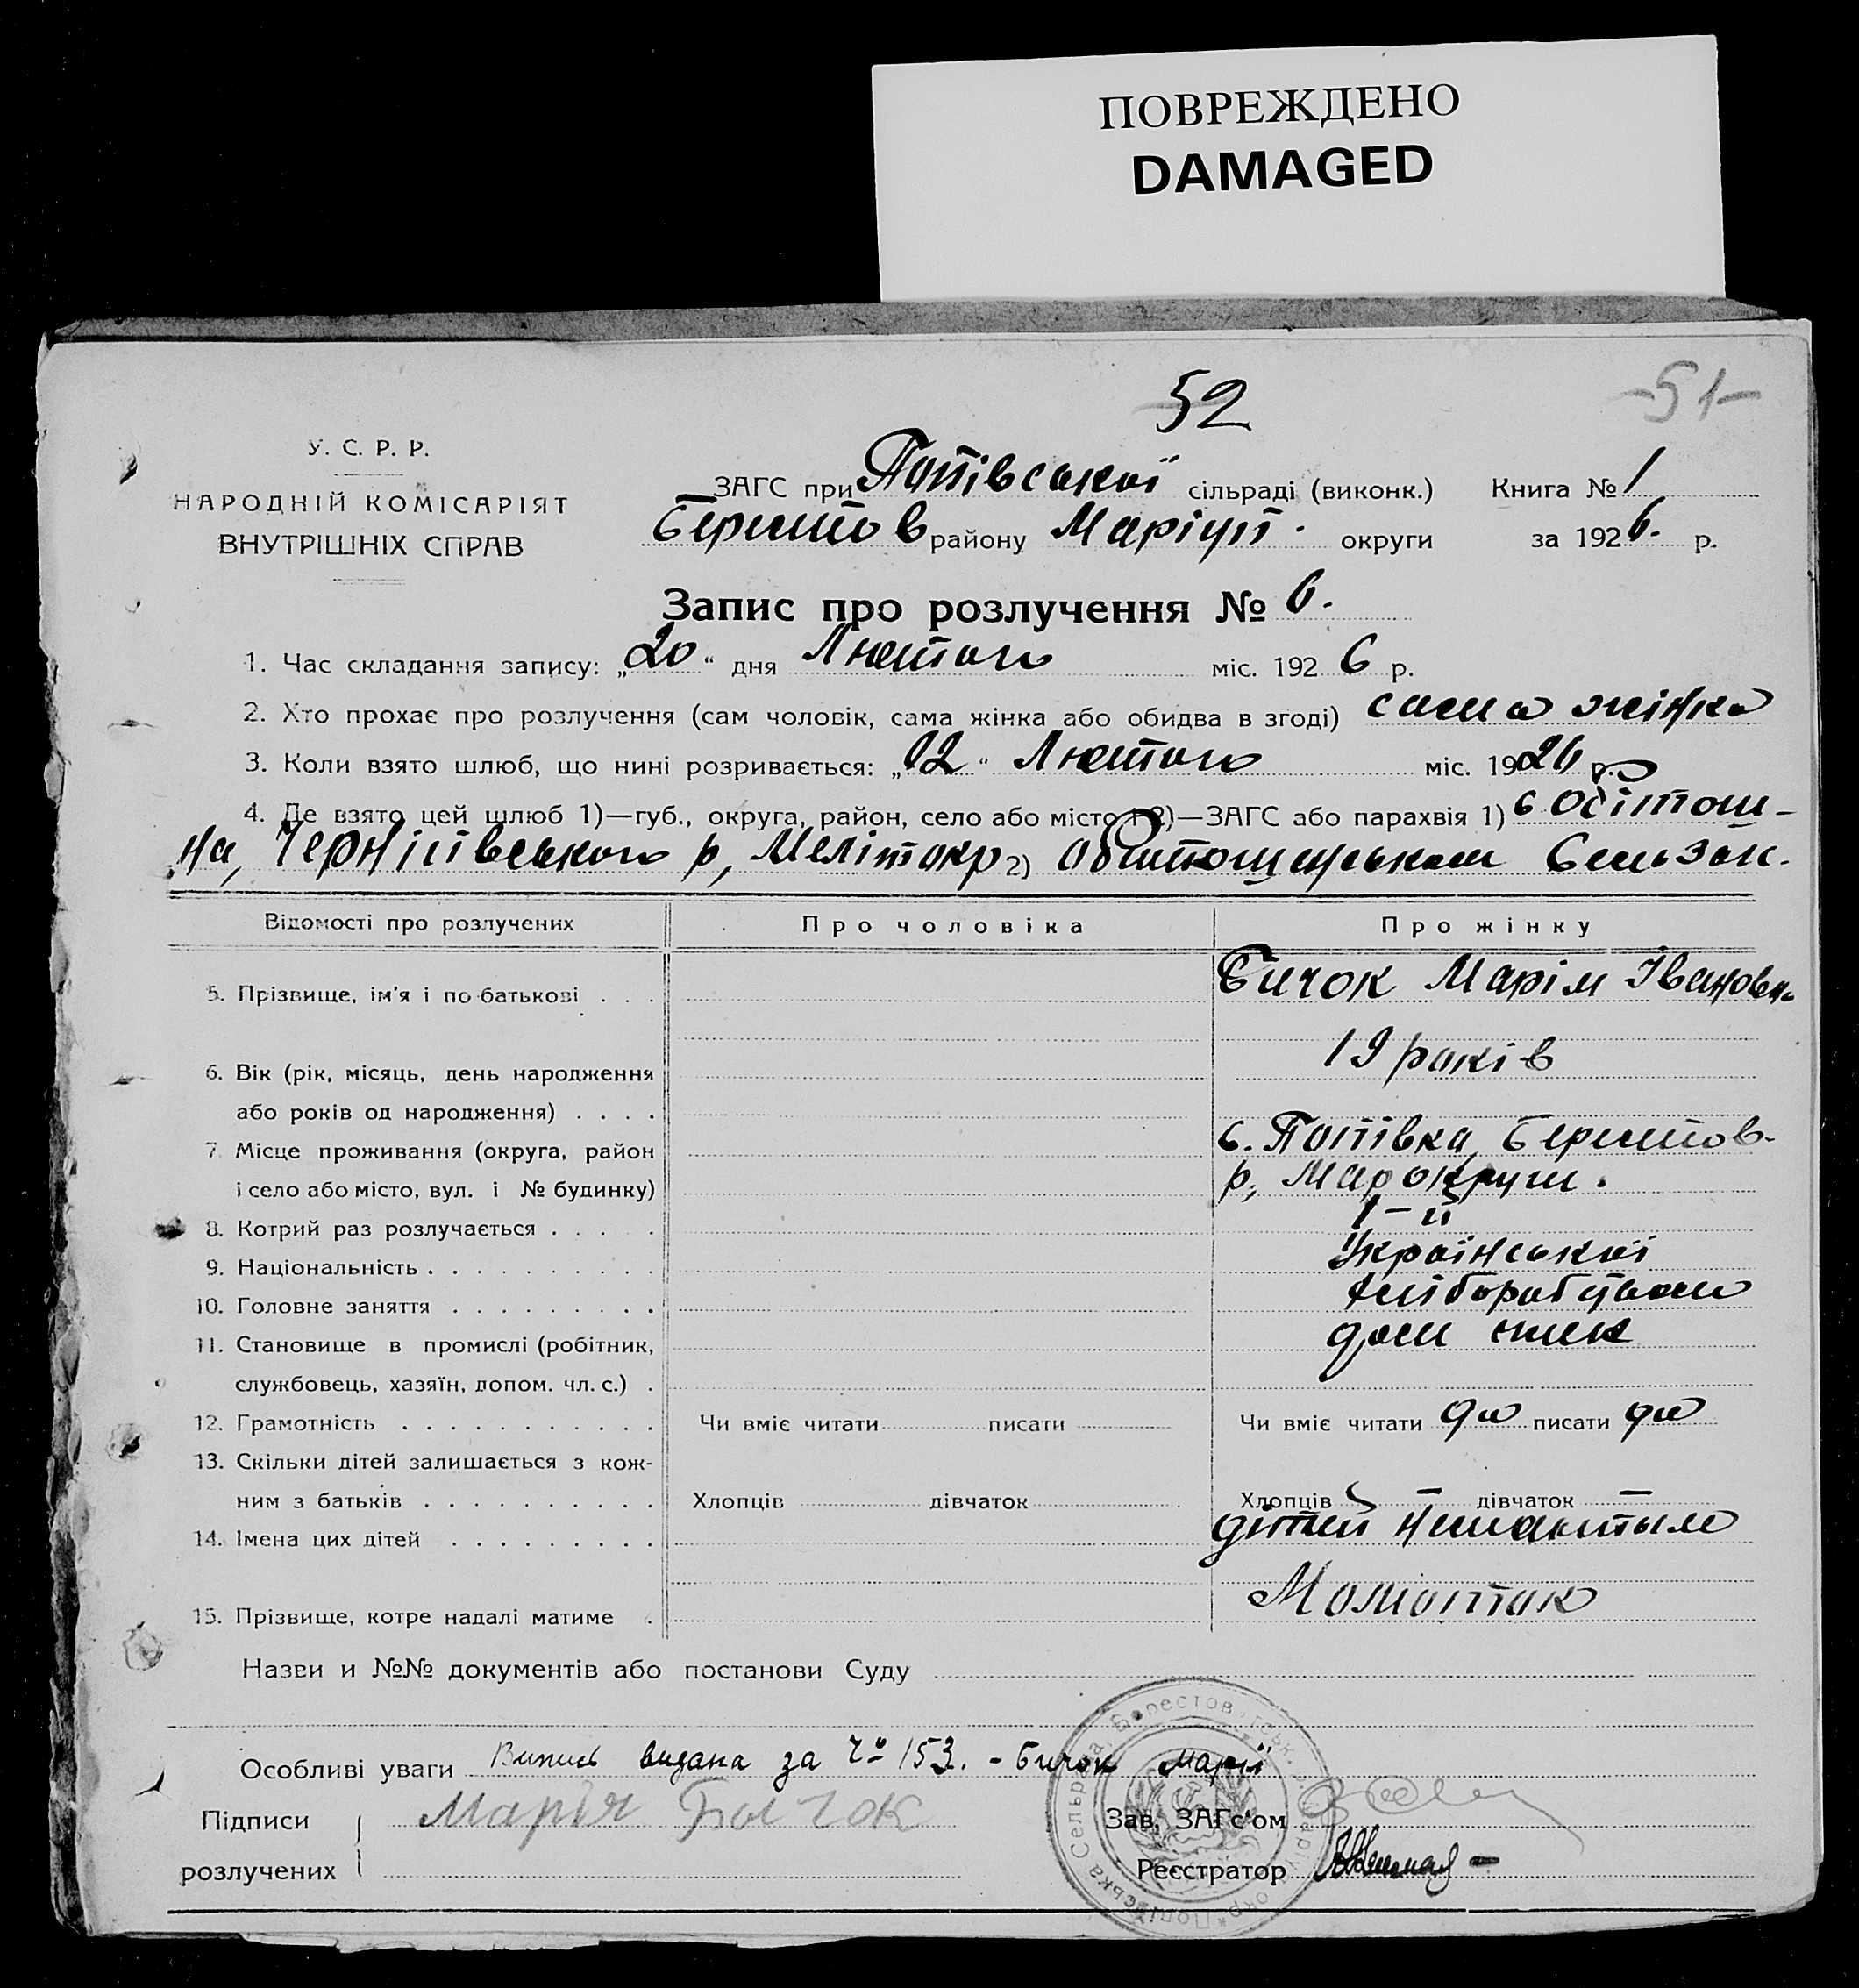 ПОВРЕЖДЕНО
DAMAGED
52
-51-
У. С. Р. Р.
НАРОДНІЙ КОМІСАРІЯТ
ВНУТРІШНІХ СПРАВ
ЗАГС при Попівській сільраді (виконк.) Книга № 1
Берестов району Маріуп. округи за 1926. р.
Запис про розлучення № 6.
1. Час складання запису: „20“ дня Лютого міс. 1926 р.
2. Хто прохає про розлучення (сам чоловік, сама жінка або обидва в згоді) сама жінка
3. Коли взято шлюб, що нині розривається: „12“ Лютого міс. 1926 р.
4. Де взято цей шлюб 1)—губ., округа, район, село або місто і 2)—ЗАГС або парахвія 1) с Обіточ-
на, Чернігівського р, Мелітокр 2)
Відомості про розлучених
Про чоловіка
Про жінку
5. Прізвище, ім'я і по-батькові . . . Бичок Марія Івановна
6. Вік (рік, місяць, день народження 19 років
або років од народження) . . . .
7. Місце проживання (округа, район с. Попівка, Берестов-
і село або місто, вул. і № будинку) р, Марокруги.
8. Котрий раз розлучається . . . . 1-й
9. Національність . . . . . . . . . . Української
10. Головне заняття . . . . . . . . .
11. Становище в промислі (робітник,
службовець, хазяїн, допом. чл. с.) .
12. Грамотність . . . . . . . . . . . Чи вміє читати писати Чи вміє читати да писати да
13. Скільки дітей залишається з кож-
ним з батьків . . . . . . . . . . Хлопців дівчаток Хлопців — дівчаток —
14. Імена цих дітей . . . . . . . . . дітей
15. Прізвище, котре надалі матиме .
Назви и №№ документів або постанови Суду
Особливі уваги Випись видана за № 153. - Бичок Марії
Підписи Марія Бычок Зав. ЗАГс'ом
розлучених Реєстратор